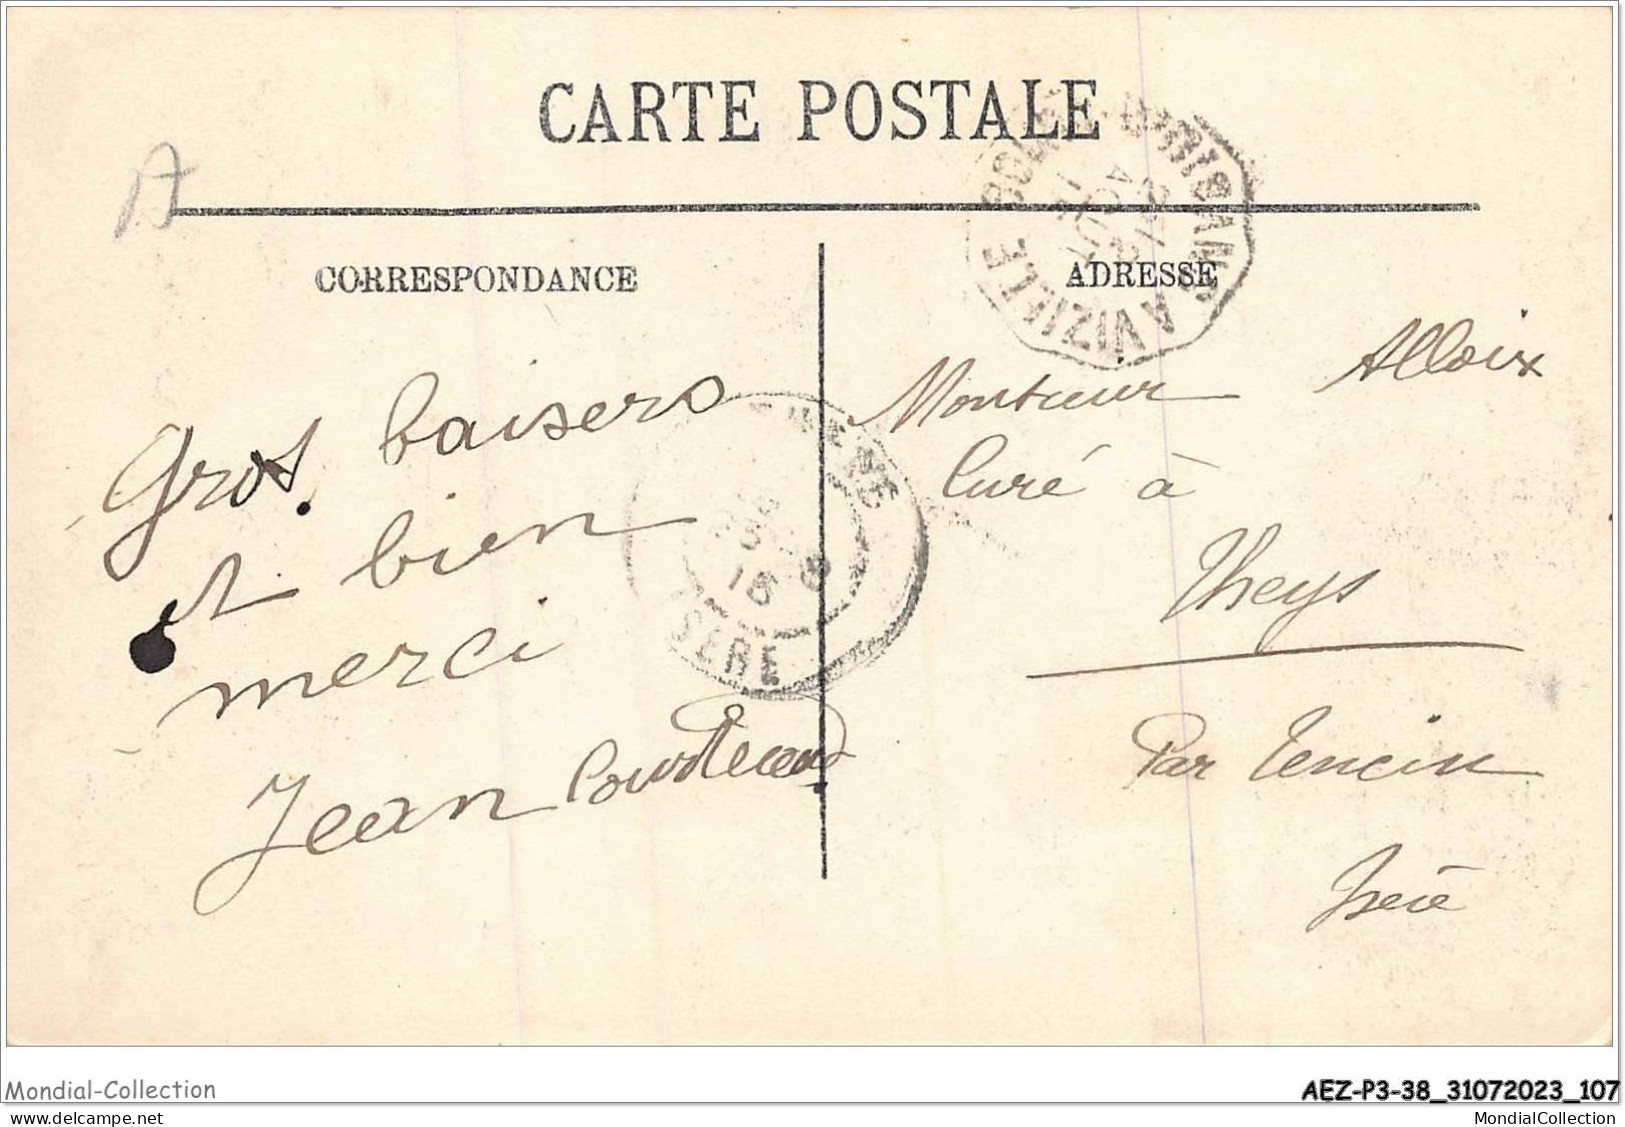 CARTE POSTALE
A
CORRESPONDANCE
ADRESSE
BOURG D'OISANS A VIZILLE
AOUT
Gros baisers
et bien
merci
Jean
ISERE
15
Monsieur Alloix
Curé à
Theys
Par Tencin
Isère
Mondial-Collection
AEZ-P3-38_31072023_107
MondialCollection
MondialCollection